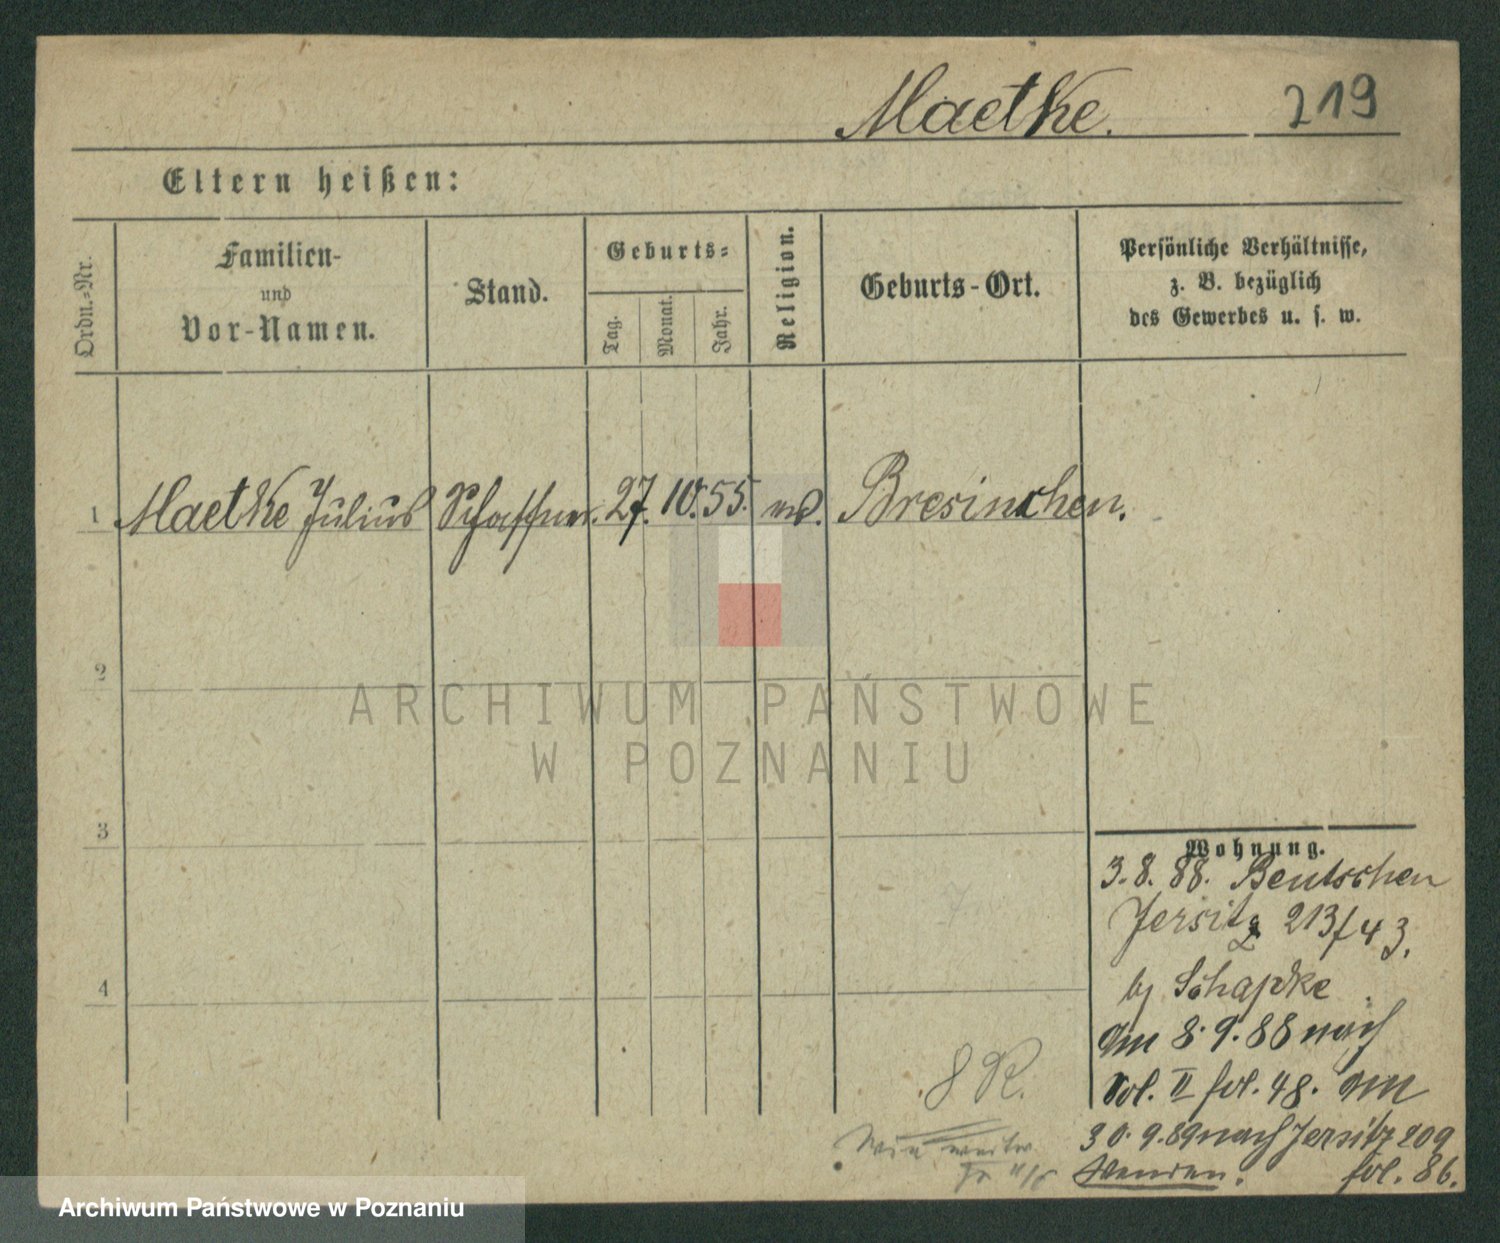 Maetke. 219
Eltern heißen:
Ordn.-Nr.
Familien-
und
Vor-Namen.
Stand.
Geburts-
Tag.
Monat.
Jahr.
Religion.
Geburts-Ort.
Persönliche Verhältnisse,
z. B. bezüglich
des Gewerbes u. s. w.
1 Maetke Julius Schaffner. 27. 10. 55. Bresinchen.
2
3
4
ARCHIWUM PAŃSTWOWE
W POZNANIU
Wohnung.
3. 8. 88. Bentschen
Jersitz 213/43.
b/ Schapke
am 8. 9. 88 nach
Vol. II fol. 48. am
30. 9. 89 nach Jersitz 209
Wenden. fol. 86.
8 R.
Archiwum Państwowe w Poznaniu